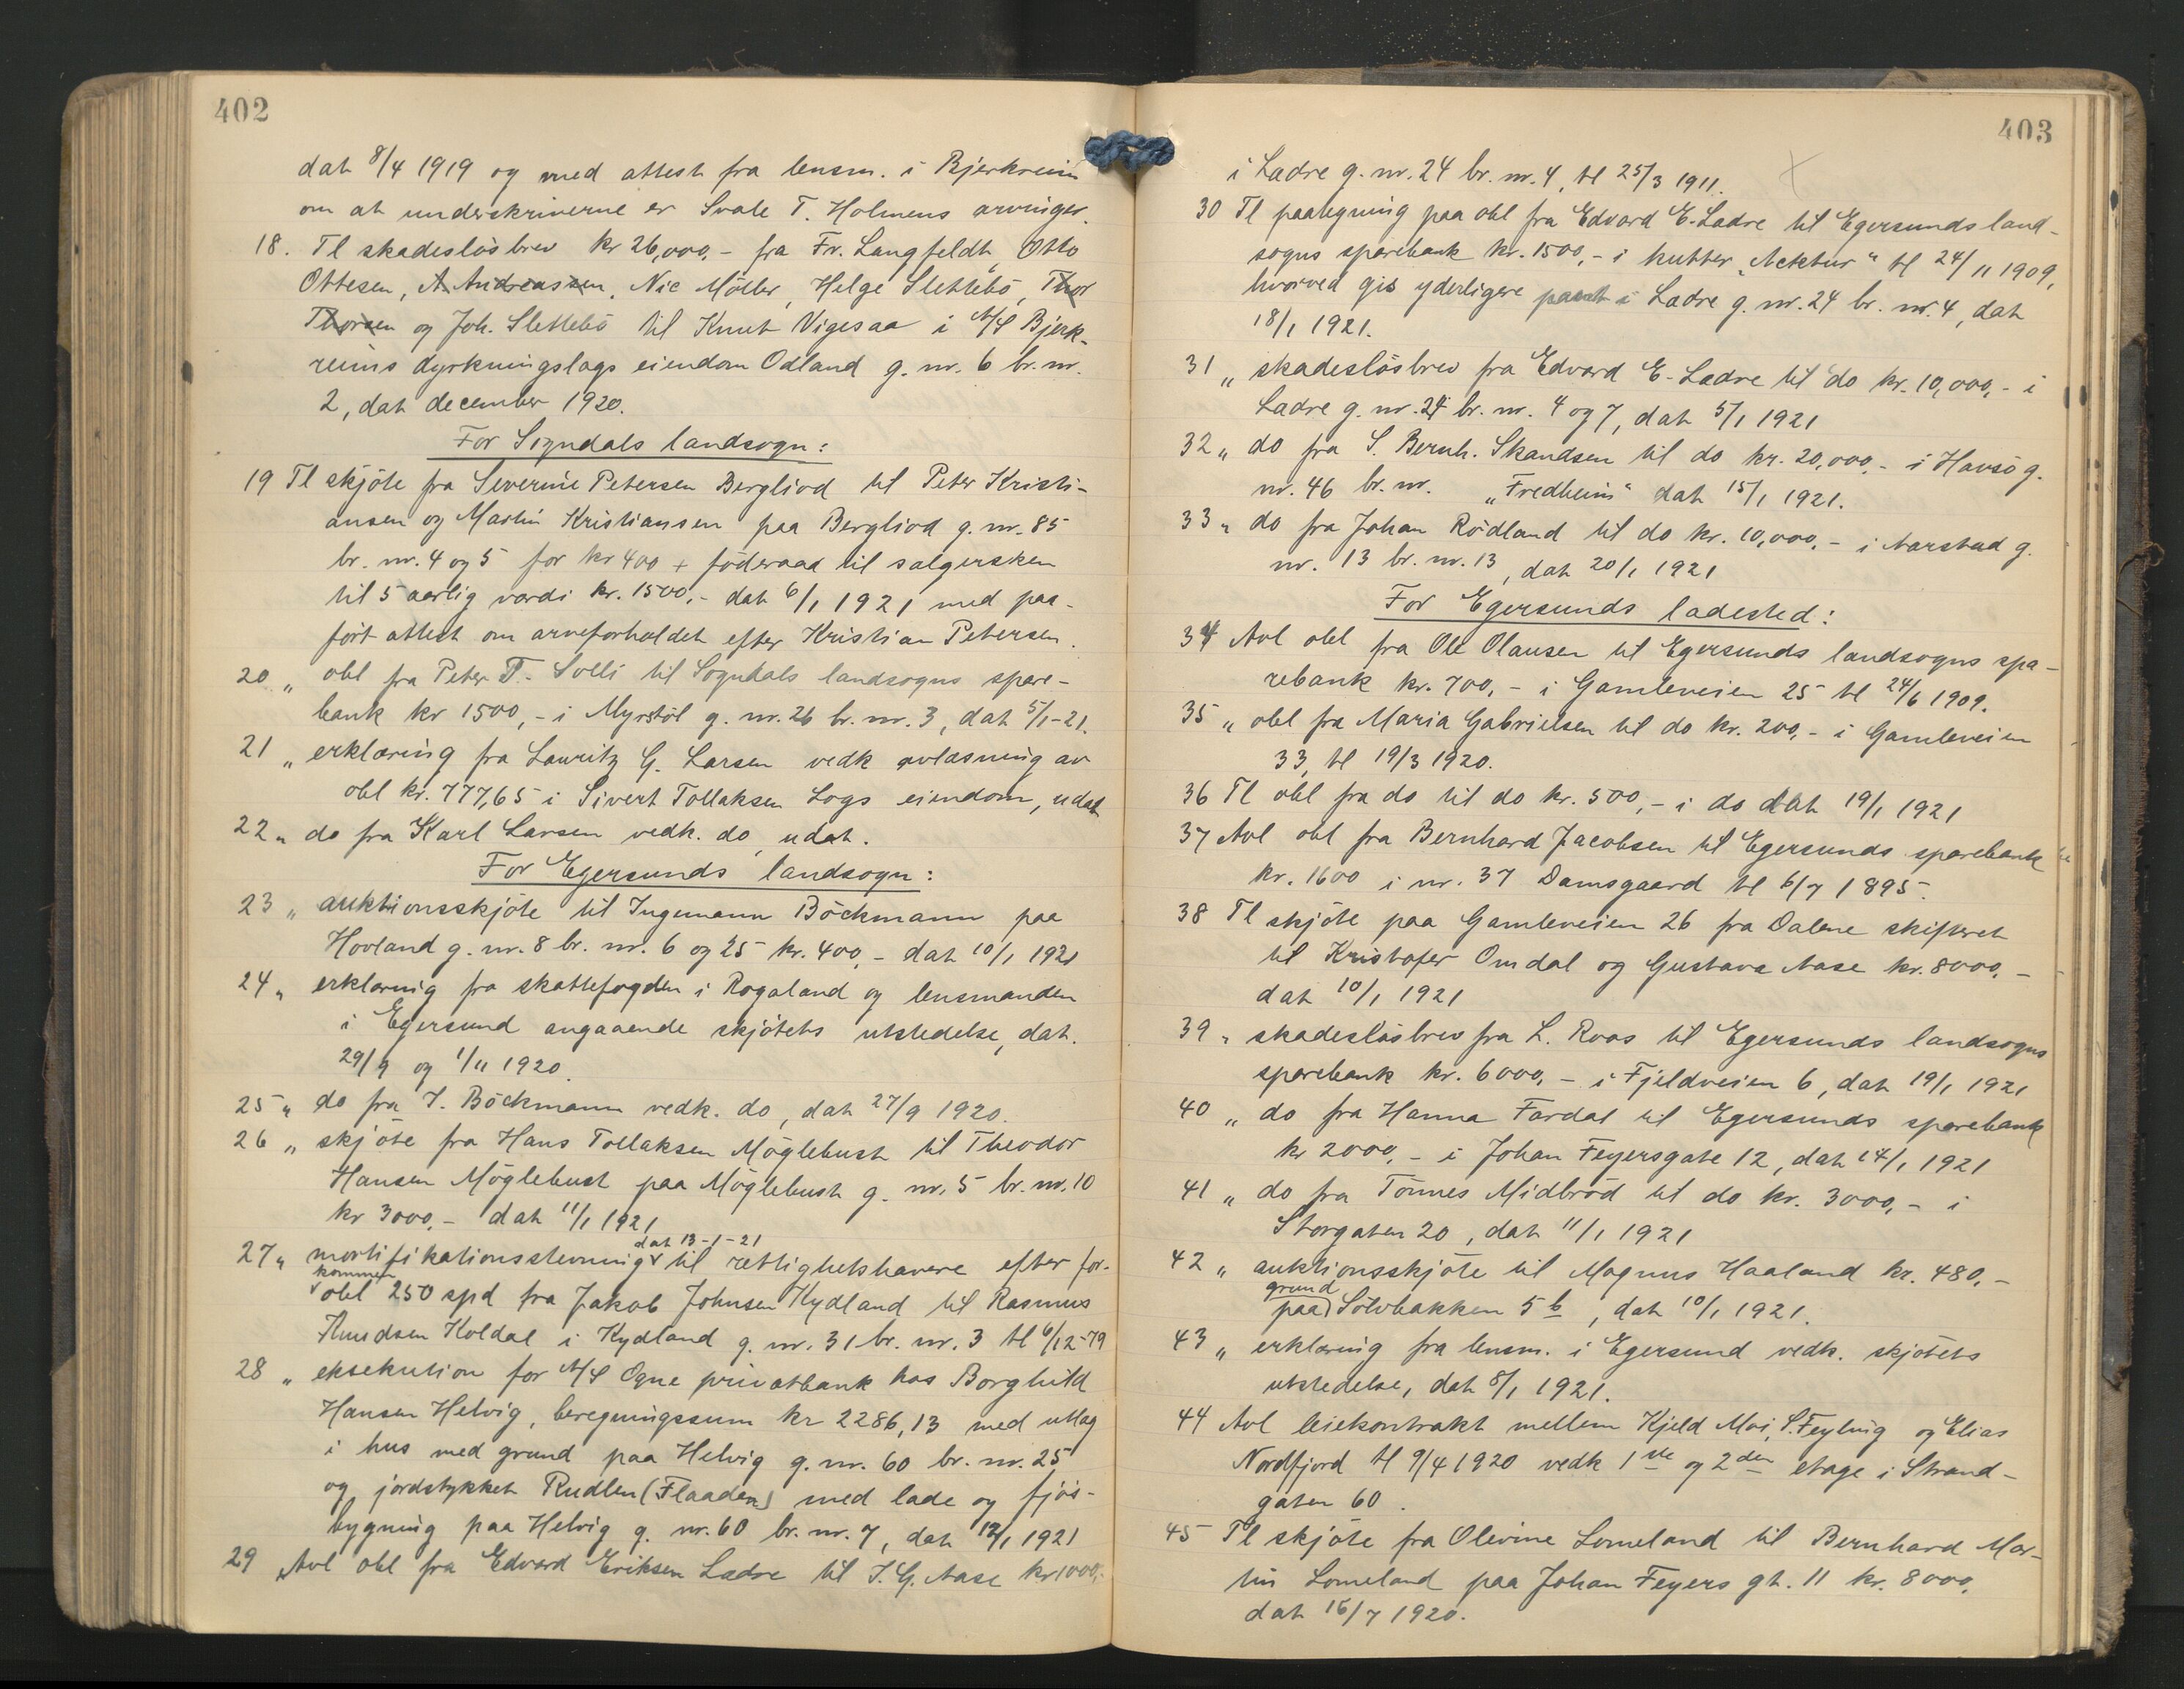 402
dat 8/4 1919 og med attest fra lensm. i Bjerkreim
om at underskriverne er Svale T. Holmens arvinger.
18. Tl skadeslösbrev kr 26,000,- fra Fr. Langfeldt, Otto
Ottesen, A. Andreassen, Nic Möller, Helge Slettebö, Thor
Thorsen og Joh. Slettebö til Knut Vigesaa i A/S Bjerk-
reims dyrkningslags eiendom Odland g. nr. 6 br. nr.
2, dat december 1920.
For Sogndals landsogn:
19 Tl skjöte fra Severine Petersen Bergliod til Peter Kristi-
ansen og Martin Kristiansen paa Bergliod g. nr. 85
br. nr. 4 og 5 for kr 400 + föderaad til sælgersken
til 5 aarlig værdi kr. 1500,- dat 6/1 1921 med paa-
fört attest om arveforholdet efter Kristian Petersen.
20 „ obl fra Peter T. Solli til Sogndals landsogns spare-
bank kr 1500,- i Myrstöl g. nr. 26 br. nr. 3, dat 5/1-21.
21 „ erklæring fra Lauritz G. Larsen vedk avlæsning av
obl kr. 777,65 i Sivert Tollaksen Logs eiendom, udat
22 „ do fra Karl Larsen vedk. do, udat.
For Egersunds landsogn:
23 „ auktionsskjöte til Ingemann Böckmann paa
Hovland g. nr. 8 br. nr. 6 og 25 kr. 400,- dat 10/1 1921
24 „ erklæring fra skattefogden i Rogaland og lensmanden
i Egersund angaaende skjötets utstedelse, dat.
29/9 og 1/11 1920.
25 „ do fra I. Böckmann vedk. do, dat 27/9 1920.
26 „ skjöte fra Hans Tollaksen Möglebust til Theodor
Hansen Möglebust paa Möglebust g. nr. 5 br. nr. 10
kr 3000,- dat 11/1 1921
dat 13-1-21
27 „ mortifikationsstevning til rettighetshavere efter for-
kommen
obl 250 spd fra Jakob Johnsen Kydland til Rasmus
Amdsen Koldal i Kydland g. nr. 31 br. nr. 3 tl 6/12-79
28 „ eksekution for A/S Ogne privatbank hos Borghild
Hansen Helvig, beregningssum kr 2286,13 med utlæg
i hus med grund paa Helvig g. nr. 60 br. nr. 25
og jordstykket Rudlen (Flaaden) med lade og fjös-
bygning paa Helvig g. nr. 60 br. nr. 7, dat 12/1 1921
29 Avl obl fra Edvard Eriksen Ladre til I. G. Aase kr 1000,-
403
i Ladre g. nr. 24 br. nr. 4, tl 25/3 1911.
30 Tl paategning paa obl fra Edvard E. Ladre til Egersunds land-
sogns sparebank kr. 1500,- i kutter „Acktur" tl 24/11 1909,
hvorved gis yderligere pant i Ladre g. nr. 24 br. nr. 4, dat
18/1 1921.
31 „ skadeslösbrev fra Edvard E. Ladre til do kr. 10,000,- i
Ladre g. nr. 24 br. nr. 4 og 7, dat 5/1 1921
32 „ do fra S. Bernh. Skandsen til do kr. 20,000,- i Havsö g.
nr. 46 br. nr. „Fredheim" dat 15/1 1921.
33 „ do fra Johan Rödland til do kr. 10,000,- i Aarstad g.
nr. 13 br. nr. 13, dat 20/1 1921
For Egersunds ladested:
34 Avl obl fra Ole Olausen til Egersunds landsogns spa-
rebank kr. 700,- i Gamleveien 25 tl 24/6 1909.
35 „ obl fra Maria Gabrielsen til do kr. 200,- i Gamleveien
33, tl 19/3 1920.
36 Tl obl fra do til do kr. 500,- i do dat 19/1 1921
37 Avl obl fra Bernhard Jacobsen til Egersunds sparebank
kr. 1600 i nr. 37 Damsgaard tl 6/7 1895.
38 Tl skjöte paa Gamleveien 26 fra Dalene skifteret
til Kristofer Omdal og Gustava Aase kr. 8000,-
dat 10/1 1921
39 „ skadeslösbrev fra L. Roos til Egersunds landsogns
sparebank kr. 6000,- i Fjeldveien 6, dat 19/1 1921
40 „ do fra Hanna Fardal til Egersunds sparebank
kr 2000,- i Johan Feyersgate 12, dat 14/1 1921
41 „ do fra Tönnes Midbröd til do kr. 3000,- i
Storgaten 20, dat 11/1 1921
42 „ auktionsskjöte til Magnus Haaland kr. 480,-
grund
paa Sölvbakken 5 b, dat 10/1 1921.
43 „ erklæring fra lensm. i Egersund vedk. skjötets
utstedelse, dat 8/1 1921.
44 Avl leiekontrakt mellem Kjeld Moi, S. Feyling og Elias
Nordfjord tl 9/4 1920 vedk 1ste og 2den etage i Strand-
gaten 60.
45 Tl skjöte fra Olevine Lomeland til Bernhard Mar-
tin Lomeland paa Johan Feyers gt. 11 kr. 8000,
dat 16/7 1920.